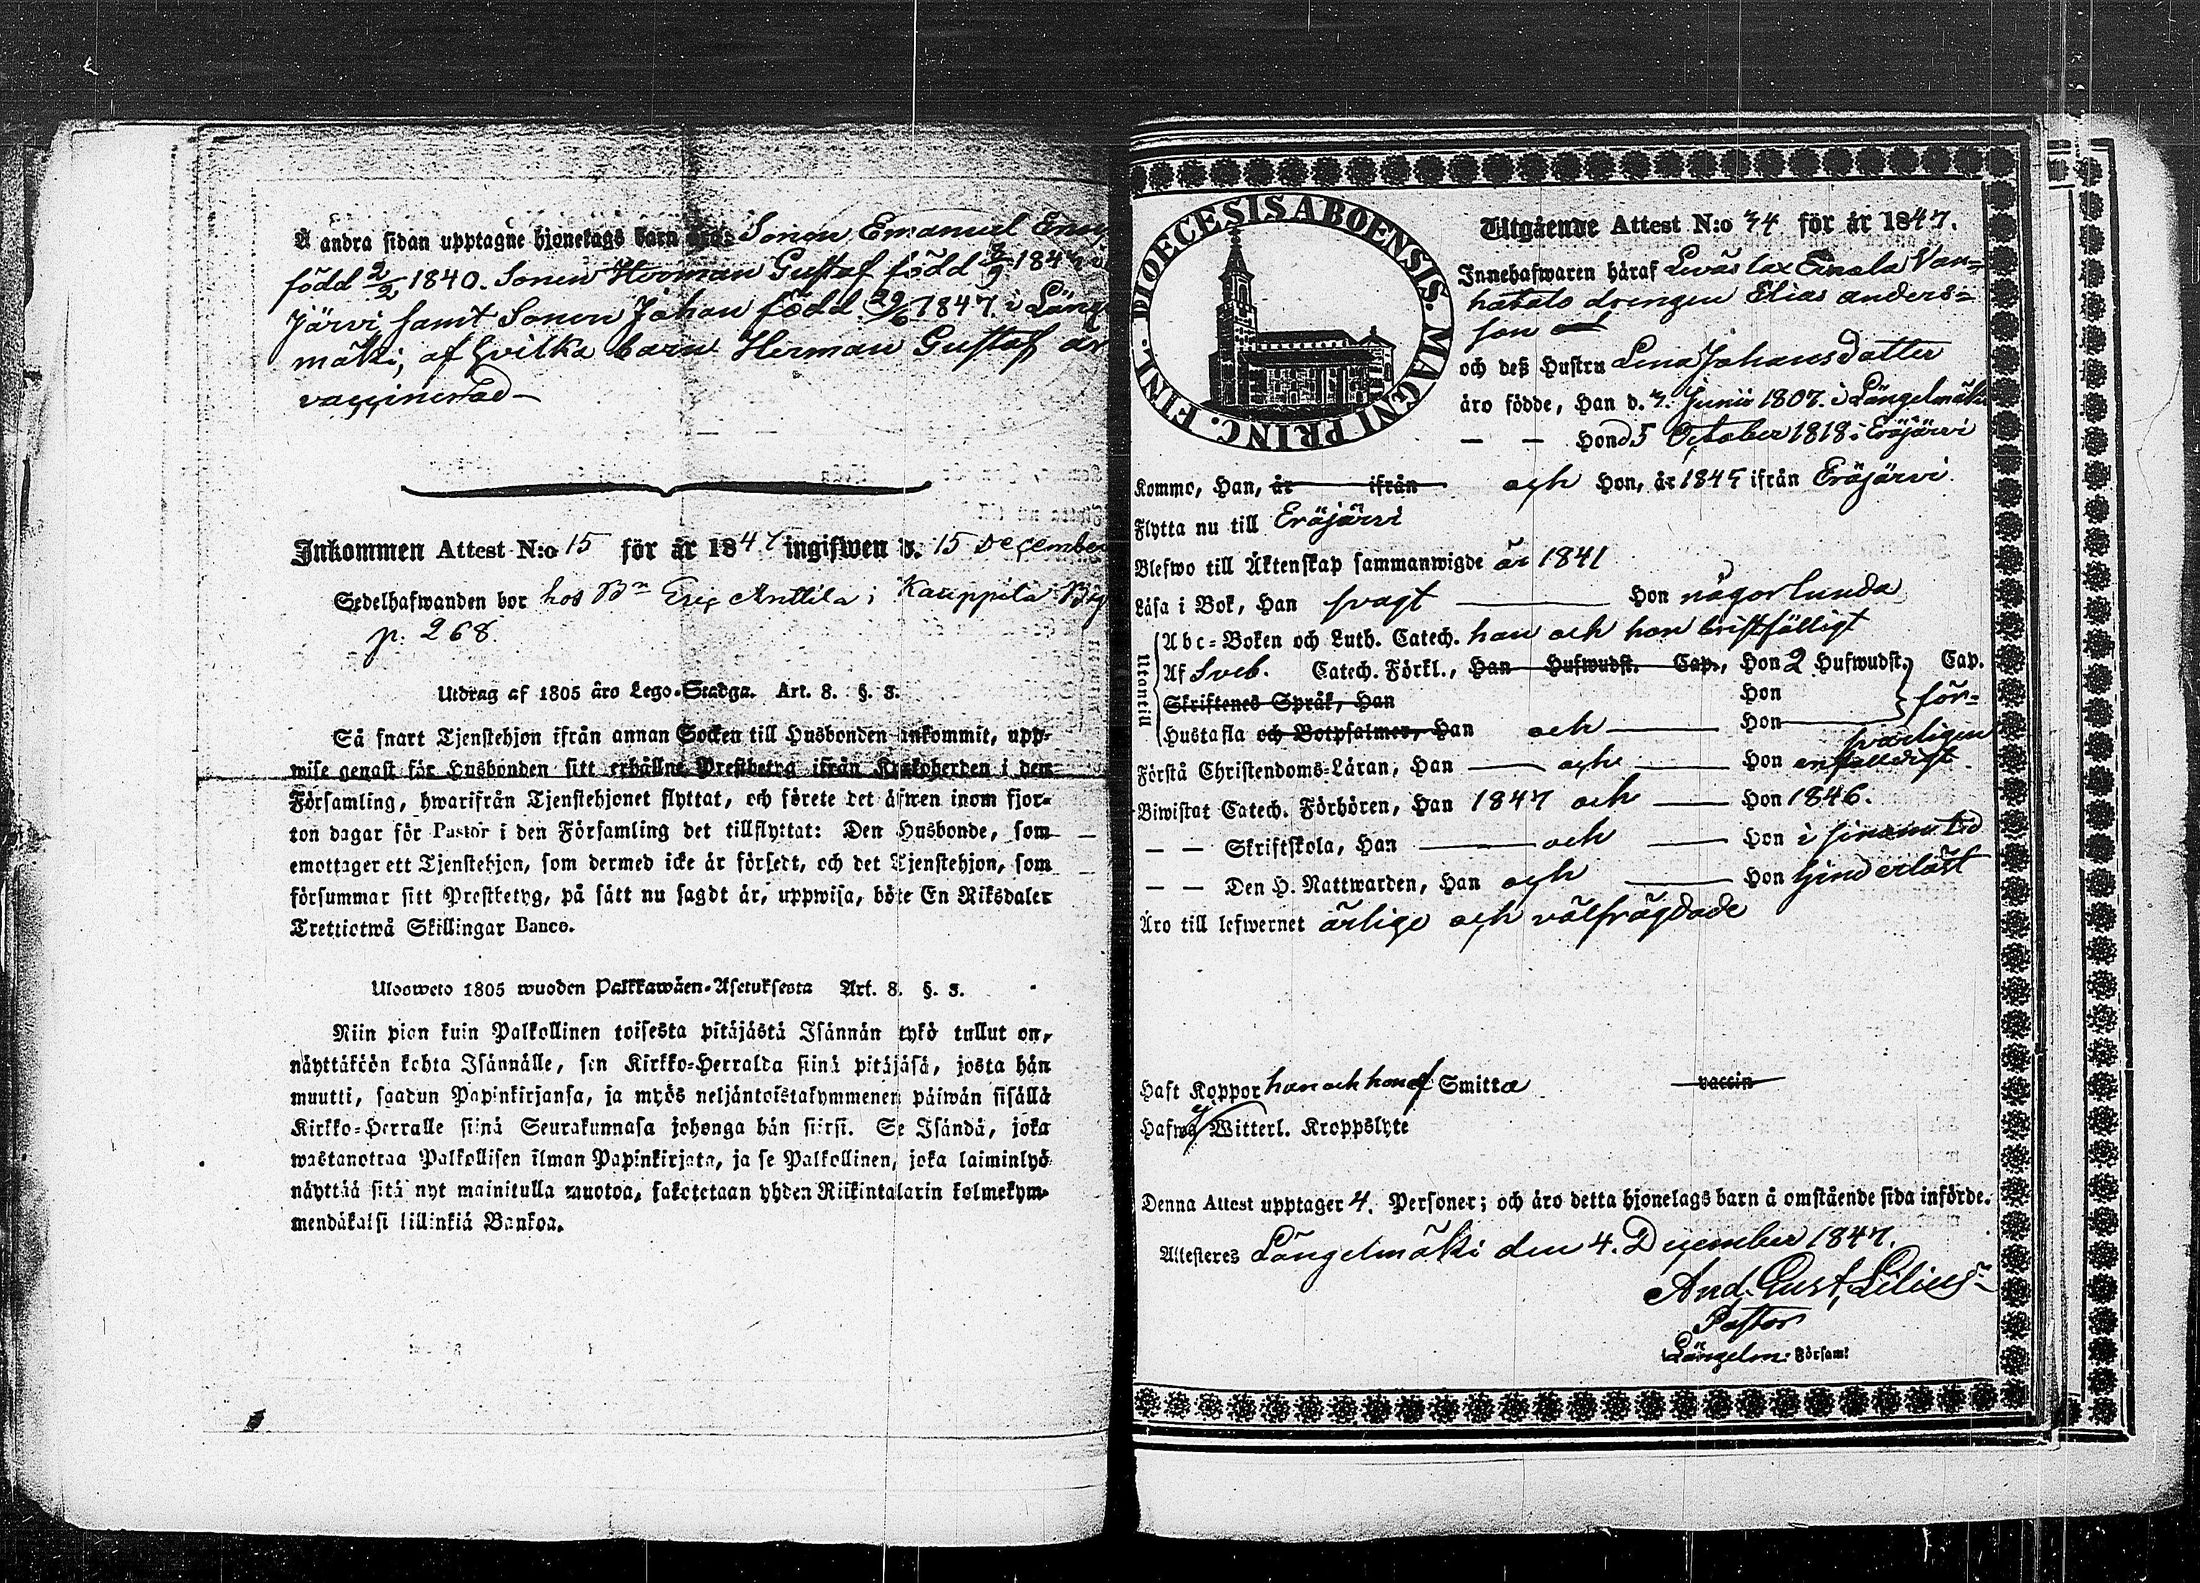 Å andra sidan upptagne hjonelags barn äro: Sonen Emanuel
född 2/2 1840. Sonen Herman Gustaf född
Järvi samt Sonen Johan född 29/6 1847. i Läng
mäki, af hvilka barn Herman Gustaf är
vaccinerad
Inkommen Attest N:o 15 för år 1847 ingifwen d. 15 December
Sedelhafwanden bor hos Bn Eric Anttila i Kauppila By
p. 268.
Utdrag af 1805 åro Lego-Stadga. Art. 8. §. 3.
Så snart Tjenstehjon ifrån annan Socken till Husbonden ankommit, upp-
wise genast för Husbonden sitt erhållne Prestbetyg ifrån Kyrkoherden i den
Församling, hwarifrån Tjenstehjonet flyttat, och förete det äfwen inom fjor-
ton dagar för Pastor i den Församling det tillflyttat: Den Husbonde, som
emottager ett Tjenstehjon, som dermed icke är försedt, och det Tjenstehjon, som
försummar sitt Prestbetyg, på sätt nu sagdt är, uppwisa, böte En Riksdaler
Trettiotwå Skillingar Banco.
Ulosweto 1805 wuoden Palkkawäen-Asetuksesta Art. 8. §. 3.
Niin pian kuin Palkollinen toisesta pitäjästä Isännän tykö tullut on,
näyttäköön kohta Isännälle, sen Kirkko-Herralda siinä pitäjäsä, josta hän
muutti, saadun Papinkirjansa, ja myös neljäntoistakymmenen päiwän sisällä
Kirkko-Herralle siinä Seurakunnasa johonga hän siirsi. Se Isändä, joka
wastanottaa Palkollisen ilman Papinkirjata, ja se Palkollinen, joka laiminlyö
näyttää sitä nyt mainitulla muotoa, sakotetaan yhden Riikintalarin kolmekym-
mendäkaksi killinkiä Bankoa.
DIOECESIS ABOENSIS. MAGNI PRINC. FINL.
Utgående Attest N:o 34 för år 1847.
Innehafwaren häraf Leväslax Einola Van-
hatalo drengen Elias anders-
son
och deß Hustru Lena Johansdotter
äro födde, Han d. 7. Junii 1807. i Längelmäki
— — Hon d 5 October 1818 i Eräjärvi
Komme, Han, år ifrån och Hon, år 1847 ifrån Eräjärvi
Flytta nu till Eräjärvi
Blefwo till Äktenskap sammanwigde år 1841
Läsa i Bok, Han svagt — Hon någorlunda
Utantill
Abc-Boken och Luth. Catech. han och hon bristfälligt
Af Sveb. Catech. Förkl., Han Hufwudst. Cap., Hon 2 Hufwudst. Cap.
Skriftenes Språk, Han Hon för-
Hustafla och Botpsalmer, Han och — Hon svarligen
Förstå Christendoms-Läran, Han — och — Hon enfaldigt
Biwistat Catech. Förhören, Han 1847 och — Hon 1846.
— — Skriftskola, Han — och — Hon i sinom tid
— — Den H. Nattwarden, Han och — Hon hinderlöst
Äro till lefwernet ärlige och välfrägdade
Haft Koppor han och hon af Smitta vaccin
Hafwa ej Witterl. Kroppslyte
Denna Attest upptager 4. Personer; och äro detta hjonelags barn å omstående sida införde.
Attesteres Längelmäki den 4. December 1847.
And. Gust. Lilius
Pastor
Längelm: Församl